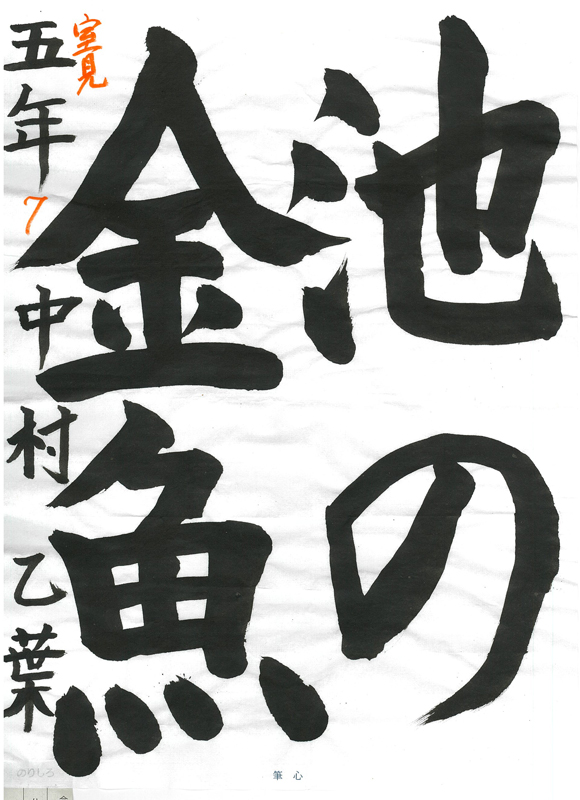 池の
金魚
室見
五年
7
中村乙葉
筆心
のりしろ